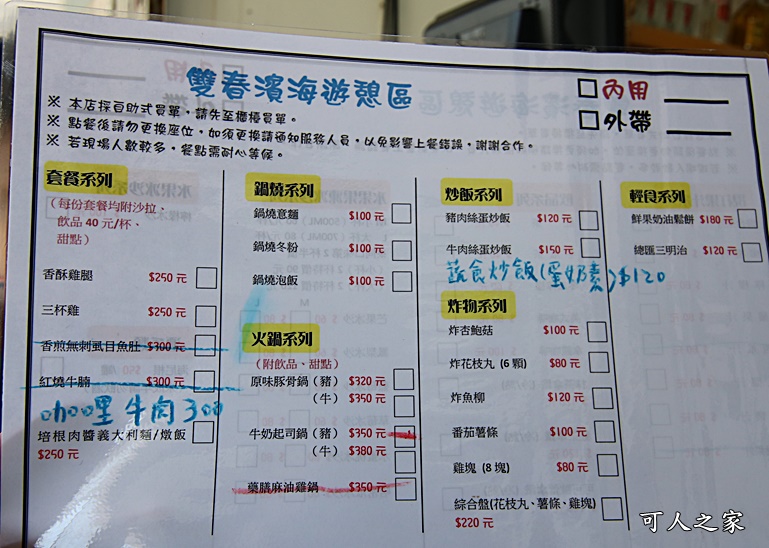 雙春濱海遊憩區
□內用
□外帶
※ 本店採自助式買單，請先至櫃檯買單。
※ 點餐後請勿更換座位，如須更換請通知服務人員，以免影響上餐錯誤，謝謝合作。
※ 若現場人數較多，餐點需耐心等候。
套餐系列
(每份套餐均附沙拉、
飲品 40 元/杯、
甜點)
香酥雞腿 $250 元
三杯雞 $250 元
香煎無刺虱目魚肚 $300 元
紅燒牛腩 $300 元
咖哩 牛肉 300
培根肉醬義大利麵/燉飯
$250 元
鍋燒系列
鍋燒意麵 $100 元
鍋燒冬粉 $100 元
鍋燒泡飯 $100 元
火鍋系列
(附飲品、甜點)
原味豚骨鍋 (豬) $320 元
(牛) $350 元
牛奶起司鍋 (豬) $350 元
(牛) $380 元
藥膳麻油雞鍋 $350 元
炒飯系列
豬肉絲蛋炒飯 $120 元
牛肉絲蛋炒飯 $150 元
蔬食炒飯(蛋奶素)$120
炸物系列
炸杏鮑菇 $100 元
炸花枝丸 (6 顆) $80 元
炸魚柳 $120 元
番茄薯條 $100 元
雞塊 (8 塊) $80 元
綜合盤(花枝丸、薯條、雞塊)
$220 元
輕食系列
鮮果奶油鬆餅 $180 元
總匯三明治 $120 元
可人之家